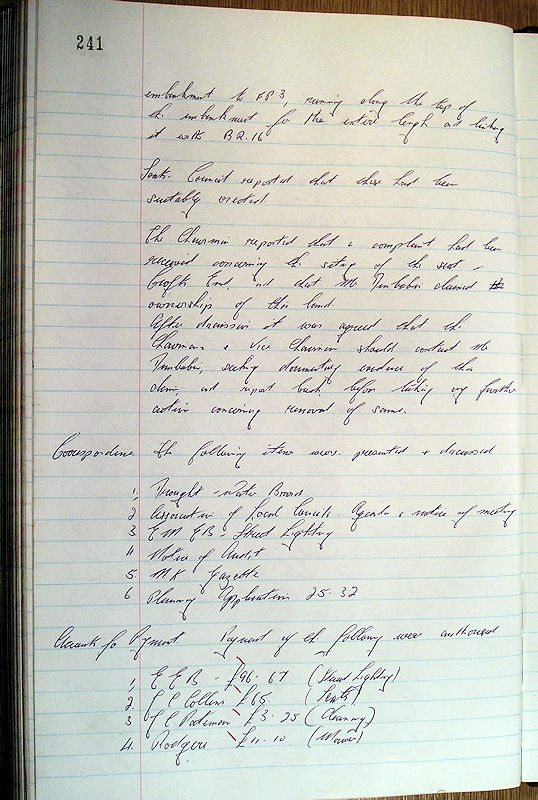 241
embankment to FP 3, running along the top of
the embankment for the entire length and linking
it with BR.16
Seats. Council reported that these had been
suitably erected.
The Chairman reported that a complaint had been
received concerning the siting of the seat -
Crofts End, and that Mr claimed the
ownership of this land.
After discussion it was agreed that the
Chairman & Vice Chairman should contact Mr
seeking documentary evidence of this
claim, and report back before taking any further
action concerning removal of same.
Correspondence The following items were presented & discussed
1, Drought - Water Board
2 Association of Local Councils. Agenda & notice of meeting
3 E M E B - Street Lighting
4 Notice of Audit
5. M K Gazette
6 Planning Application 25-32
Accounts for Payment Payment of the following were authorised
1, E E B - £96.67 (Street Lighting)
2, Collins £65. (Seats)
3 £3.25 (Cleaning)
4. Rodgers £11.10 (Mower)